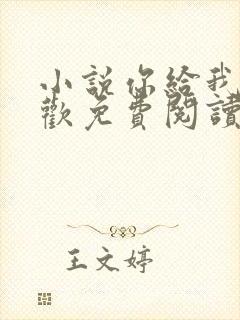 小說你給我
歡免費閱讀
王文婷